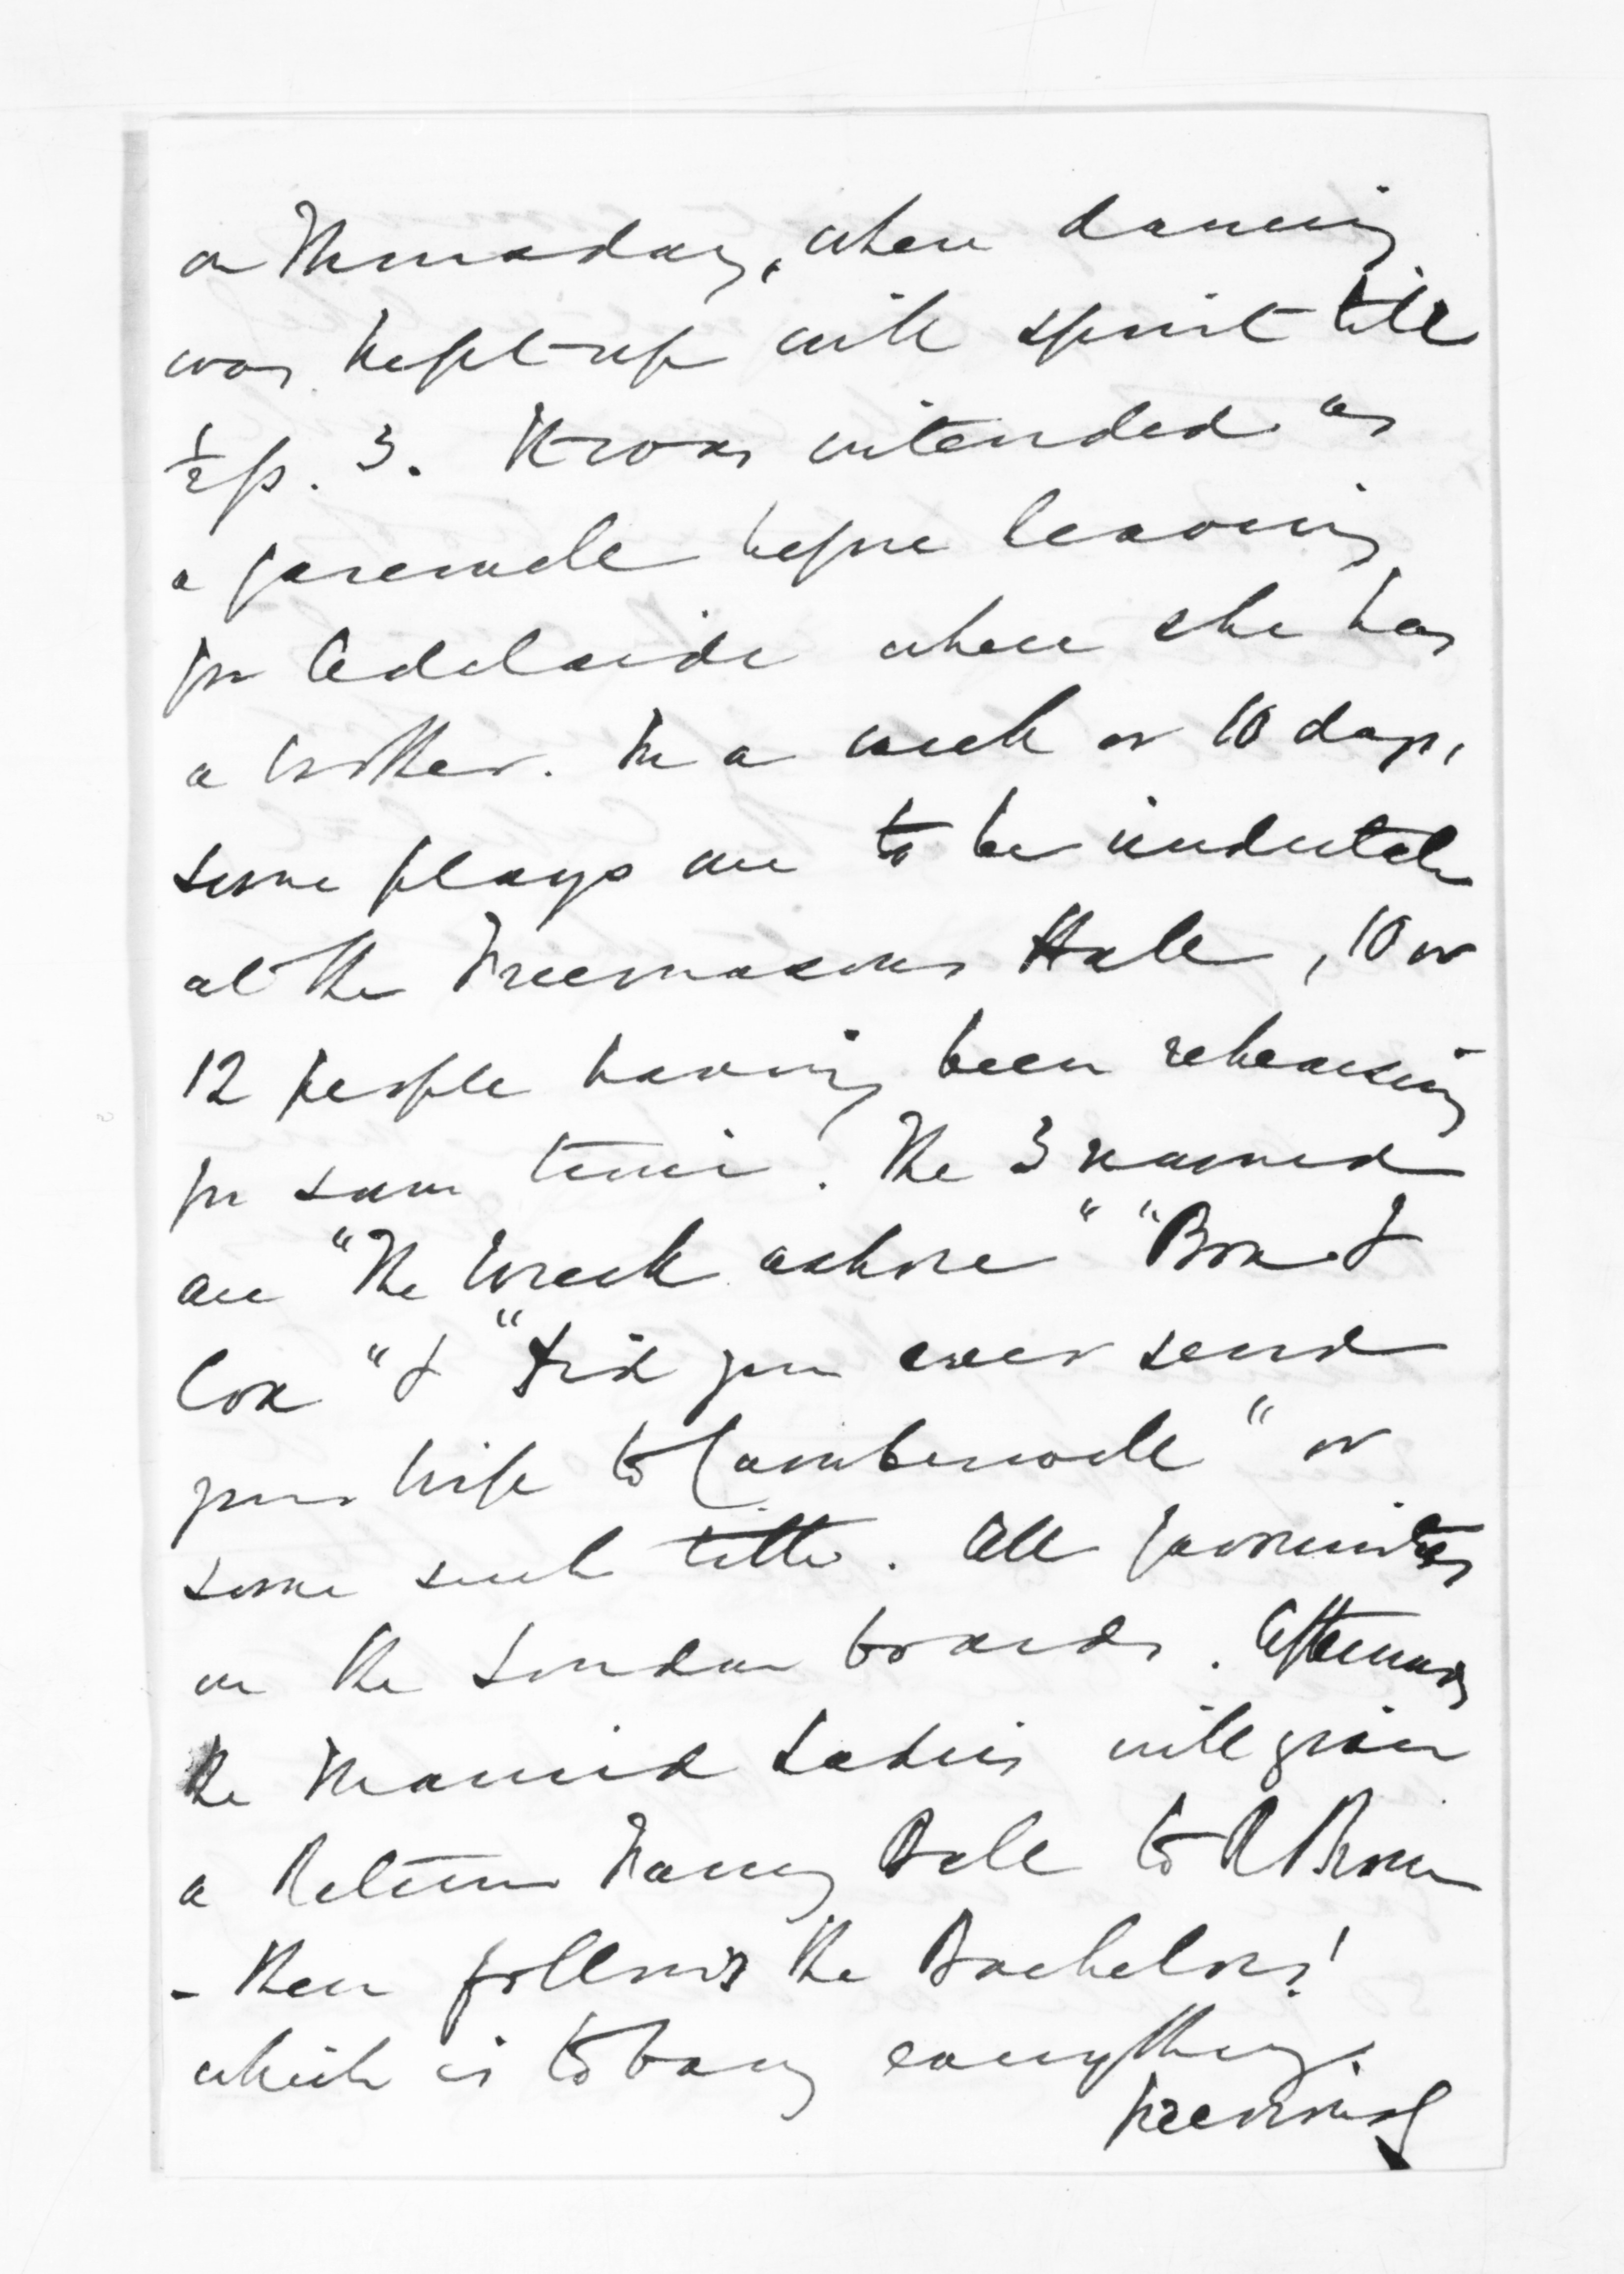 on Thursday, when dancing
was kept up with spirit till
½ p. 3. It was intended as
a farewell before leaving
for Adelaide where she has
a brother. In a week or 10 days,
some plays are to be undertaken
at the Freemasons Hall, 10 or
12 people having been rehearsing
for some time. The 3 named
are "The Wreck ashore" "Box &
Cox" & "Did you ever send
your wife to Camberwell" or
some such title. All favourites
on the London boards. Afterwards
the Married Ladies will give
a Return Fancy Ball to
- then follows the Bachelors!
which is to bang everything
previous